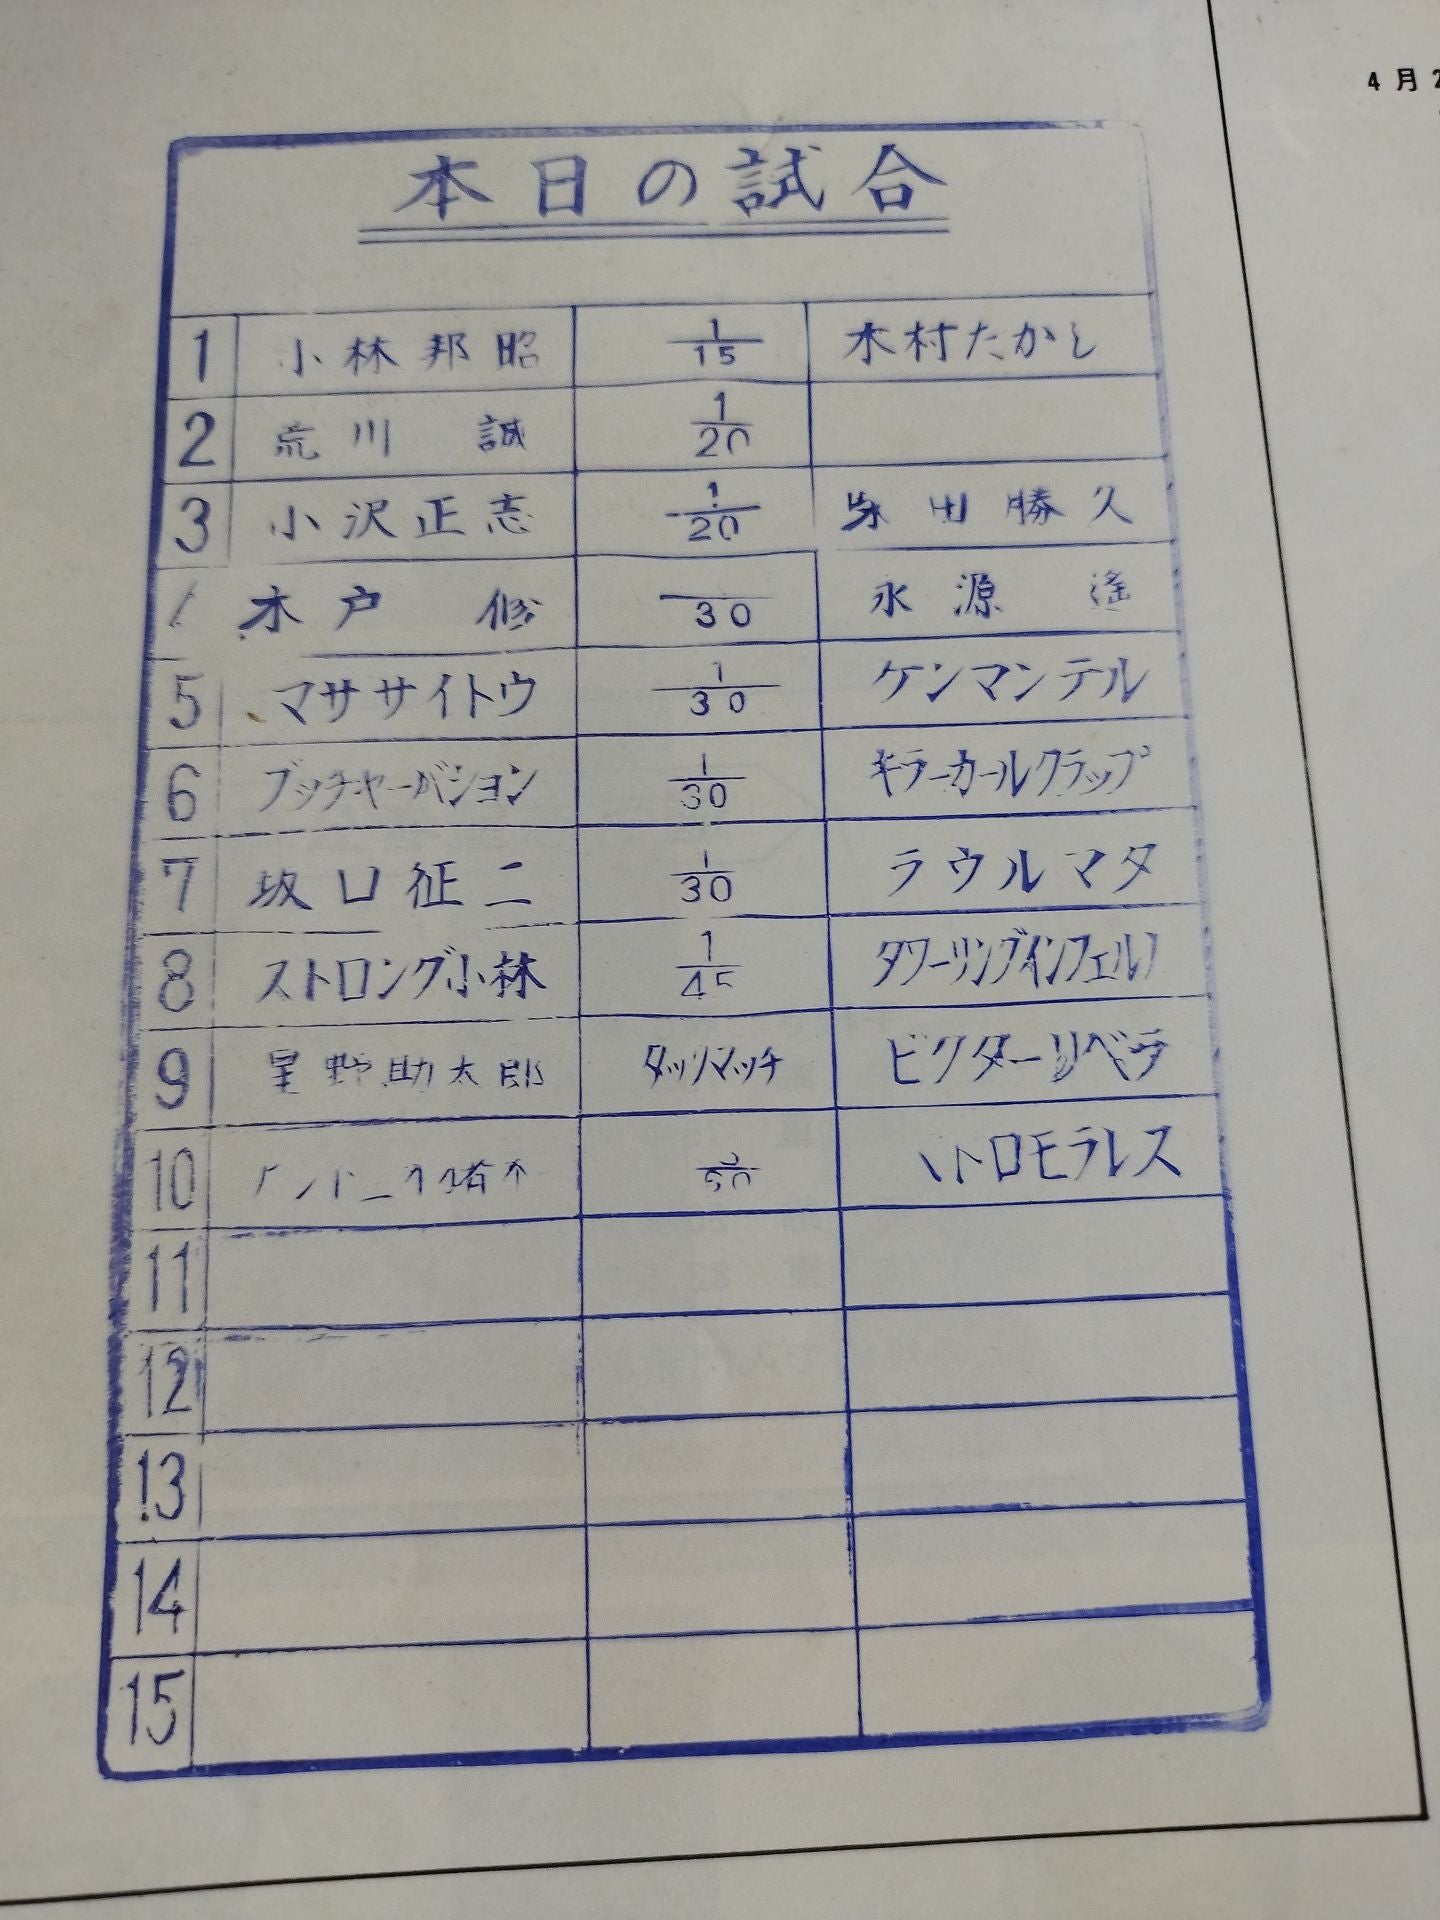 4月2
本日の試合
1 小林邦昭 1/15 木村たかし
2 荒川 誠 1/20
3 小沢正志 1/20 柴田勝久
木戸 修 30 永源 遙
5 マササイトウ 1/30 ケンマンテル
6 ブッチャーバション 1/30 キラーカールクラップ
7 坂口征二 1/30 ラウルマタ
8 ストロング小林 1/45 タワーリングインフェルノ
9 星野勘太郎 タッグマッチ ビクターリベラ
10 アントニオ猪木 ペドロモラレス
11
12
13
14
15